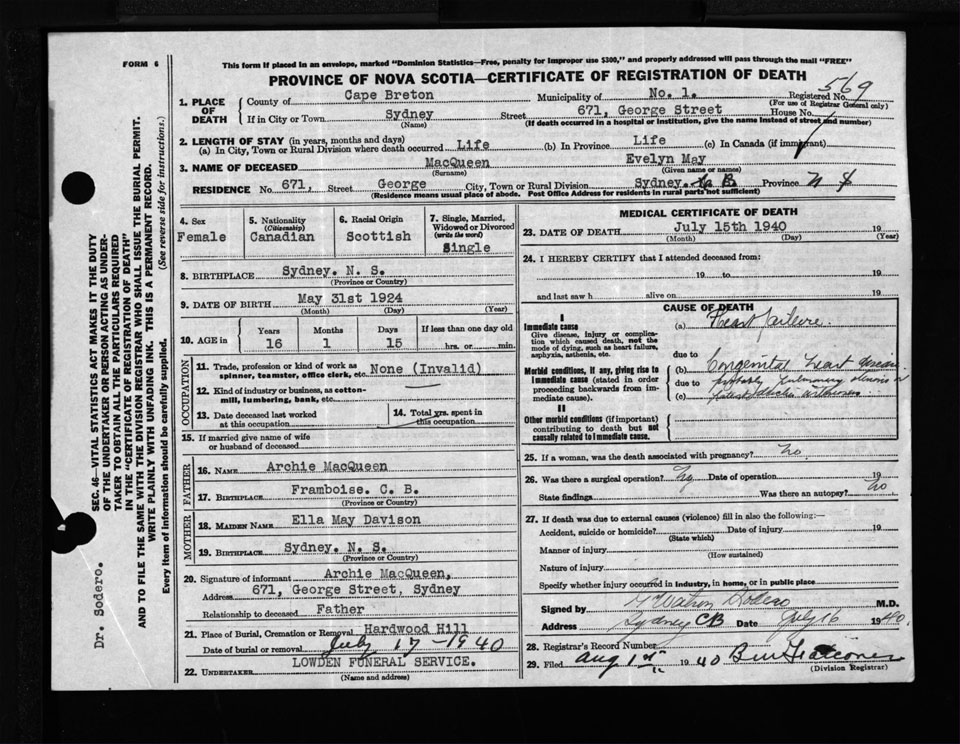 FORM 6
This form if placed in an envelope, marked "Dominion Statistics—Free, penalty for improper use $300," and properly addressed will pass through the mail "FREE"
PROVINCE OF NOVA SCOTIA—CERTIFICATE OF REGISTRATION OF DEATH
569
1. PLACE OF DEATH
County of Cape Breton Municipality of No. 1. Registered No.
(For use of Registrar General only)
If in City or Town Sydney Street 671, George Street House No.
(Name) (If death occurred in a hospital or institution, give the name instead of street and number)
2. LENGTH OF STAY (in years, months and days)
(a) In City, Town or Rural Division where death occurred Life (b) In Province Life (c) In Canada (if immigrant)
3. NAME OF DECEASED MacQueen Evelyn May
(Surname) (Given name or names)
RESIDENCE No. 671, Street George City, Town or Rural Division Sydney. Province N S
(Residence means usual place of abode. Post Office Address for residents in rural parts not sufficient)
4. Sex
Female
5. Nationality
(Citizenship)
Canadian
6. Racial Origin
Scottish
7. Single, Married,
Widowed or Divorced
(write the word)
Single
8. BIRTHPLACE Sydney. N. S.
(Province or Country)
9. DATE OF BIRTH May 31st 1924
(Month) (Day) (Year)
10. AGE in
Years Months Days If less than one day old
16 1 15 hrs. or min.
OCCUPATION
11. Trade, profession or kind of work as
spinner, teamster, office clerk, etc. None (Invalid)
12. Kind of industry or business, as cotton-
mill, lumbering, bank, etc.
13. Date deceased last worked
at this occupation
14. Total yrs. spent in
this occupation
15. If married give name of wife
or husband of deceased
FATHER
16. NAME Archie MacQueen
17. BIRTHPLACE Framboise. C. B.
(Province or Country)
MOTHER
18. MAIDEN NAME Ella May Davison
19. BIRTHPLACE Sydney. N. S.
(Province or Country)
20. Signature of informant Archie MacQueen,
Address 671, George Street, Sydney
Relationship to deceased Father
21. Place of Burial, Cremation or Removal Hardwood Hill
Date of burial or removal July 17 - 1940
22. UNDERTAKER LOWDEN FUNERAL SERVICE.
(Name and address)
MEDICAL CERTIFICATE OF DEATH
23. DATE OF DEATH July 15th 1940 19
(Month) (Day) (Year)
24. I HEREBY CERTIFY that I attended deceased from:
19 to 19
and last saw h alive on 19
CAUSE OF DEATH
I
Immediate cause
Give disease, injury or complica-
tion which caused death, not the
mode of dying, such as heart failure,
asphyxia, asthenia, etc.
(a) Heart failure.
due to
Morbid conditions, if any, giving rise to
immediate cause (stated in order
proceeding backwards from im-
mediate cause).
(b) Congenital heart disease
due to probably pulmonary stenosis or
(c)
II
Other morbid conditions (if important)
contributing to death but not
causally related to immediate cause.
25. If a woman, was the death associated with pregnancy? no
26. Was there a surgical operation? no Date of operation 19
State findings Was there an autopsy? no
27. If death was due to external causes (violence) fill in also the following:—
Accident, suicide or homicide? Date of injury 19
(State which)
Manner of injury
(How sustained)
Nature of injury
Specify whether injury occurred in industry, in home, or in public place
Signed by Sodero M.D.
Address Sydney CB Date July 16 1940.
28. Registrar's Record Number
29. Filed Aug 1st 1940
(Division Registrar)
SEC. 46—VITAL STATISTICS ACT MAKES IT THE DUTY
OF THE UNDERTAKER OR PERSON ACTING AS UNDER-
TAKER TO OBTAIN ALL THE PARTICULARS REQUIRED
IN THE "CERTIFICATE OF REGISTRATION OF DEATH"
AND TO FILE THE SAME WITH THE DIVISION REGISTRAR WHO SHALL ISSUE THE BURIAL PERMIT.
WRITE PLAINLY WITH UNFADING INK. THIS IS A PERMANENT RECORD.
Every item of information should be carefully supplied. (See reverse side for instructions.)
Dr. Sodero.